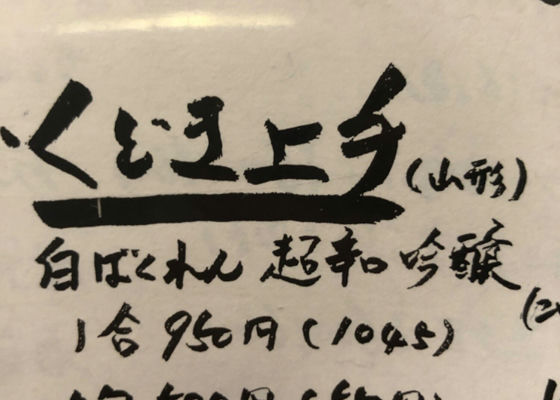 くどき上手(山形)
白ばくれん 超辛口 吟醸
1合 950円(1045)